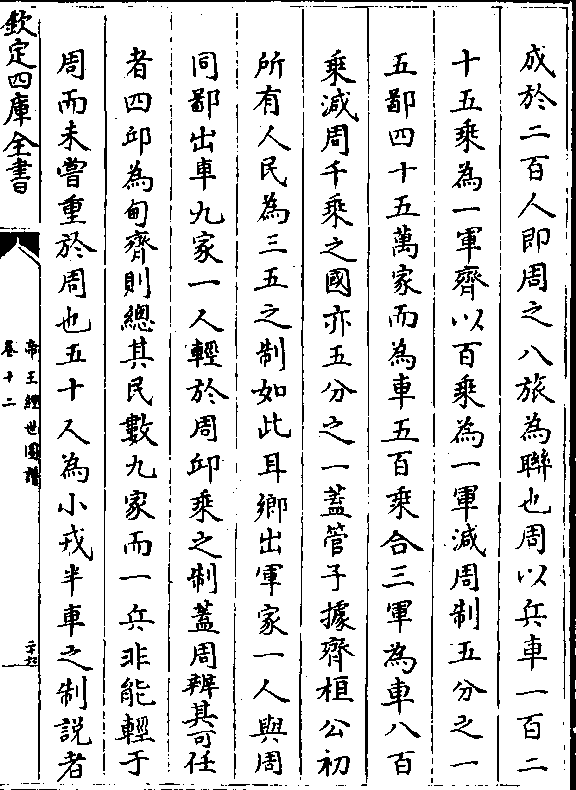 成於二百人即周之八旅為聯也周以兵車一百二
十五乘為一軍齊以百乘為一軍減周制五分之一
五鄙四十五萬家而為車五百乘合三軍為車八百
乘減周千乘之國亦五分之一蓋管子據齊桓公初
所有人民為三五之制如此耳鄉出軍家一人與周
同鄙出車九家一人輕於周邱乘之制蓋周辨其可任
者四邱為甸齊則總其民數九家而一兵非能輕于
周而未嘗重於周也五十人為小戎半車之制説者
欽定四庫全書
帝王經世圖譜
卷十二